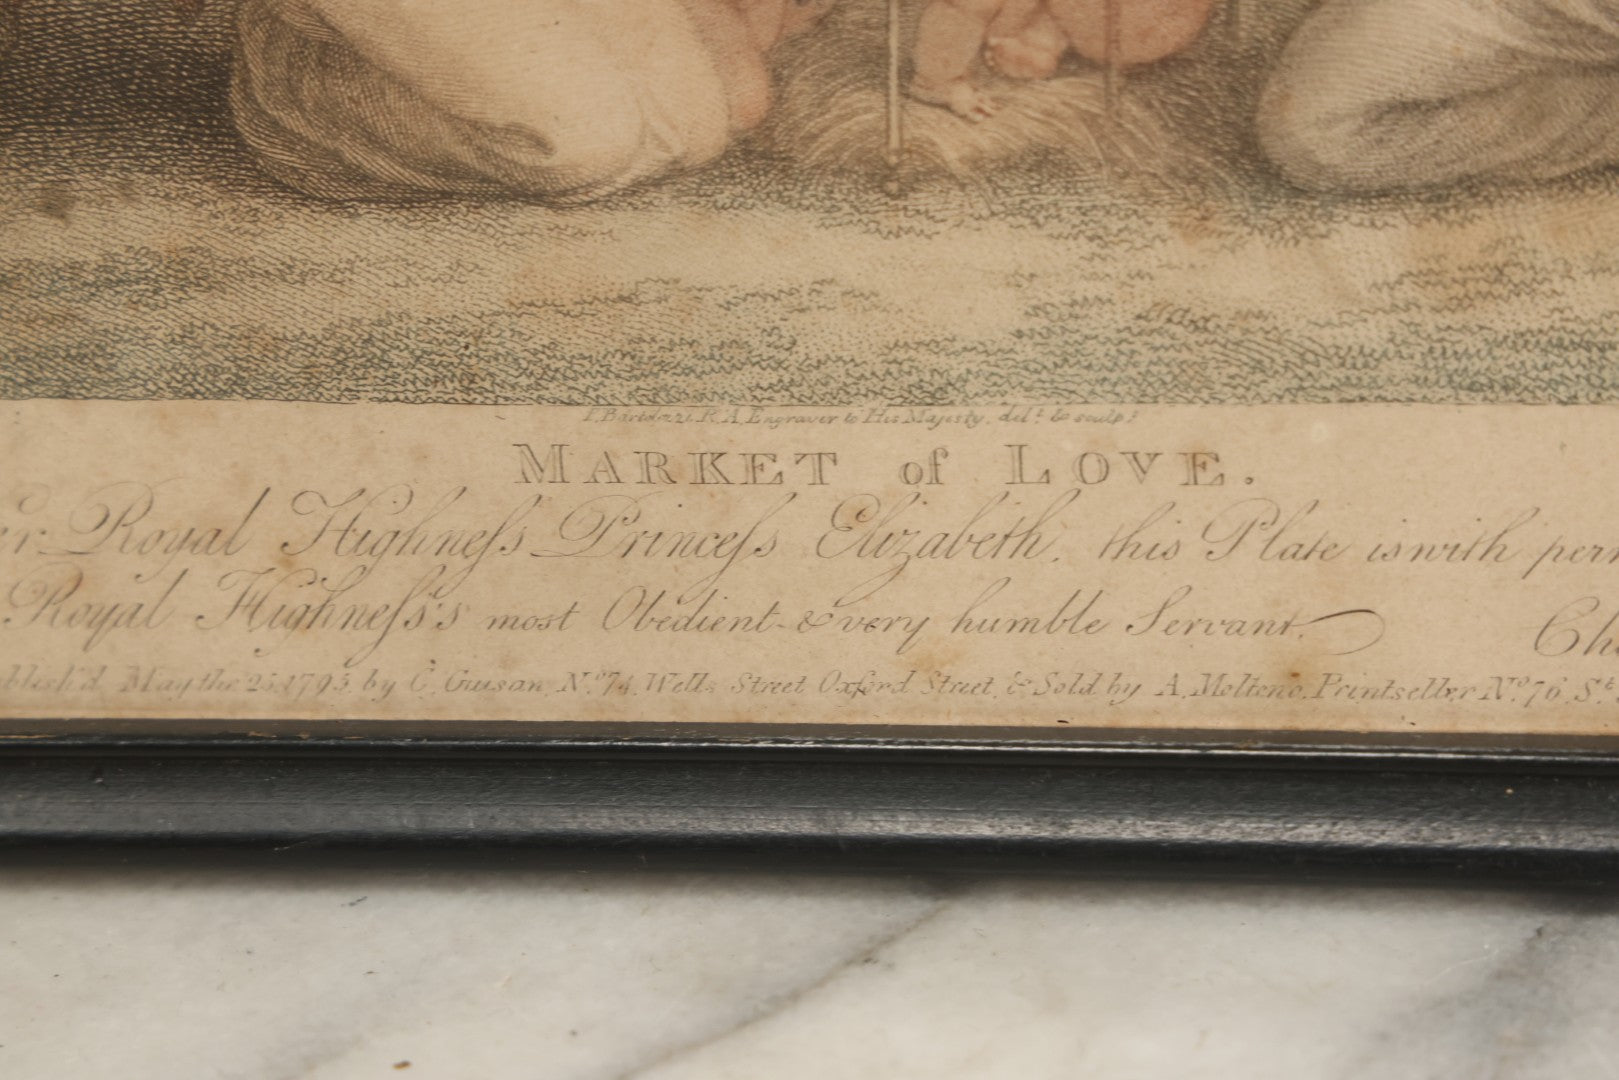 F. Bartolozzi, R.A. Engraver to His Majesty, delt. & sculpt.
MARKET of LOVE.
Royal Highneſs Princeſs Elizabeth, this Plate is with
Royal Highneſs's most Obedient & very humble Servant.
May the 25, 1795, by C. Guisan, No. 74, Wells Street Oxford Street, & Sold by A. Molteno, Printseller No. 76, St.